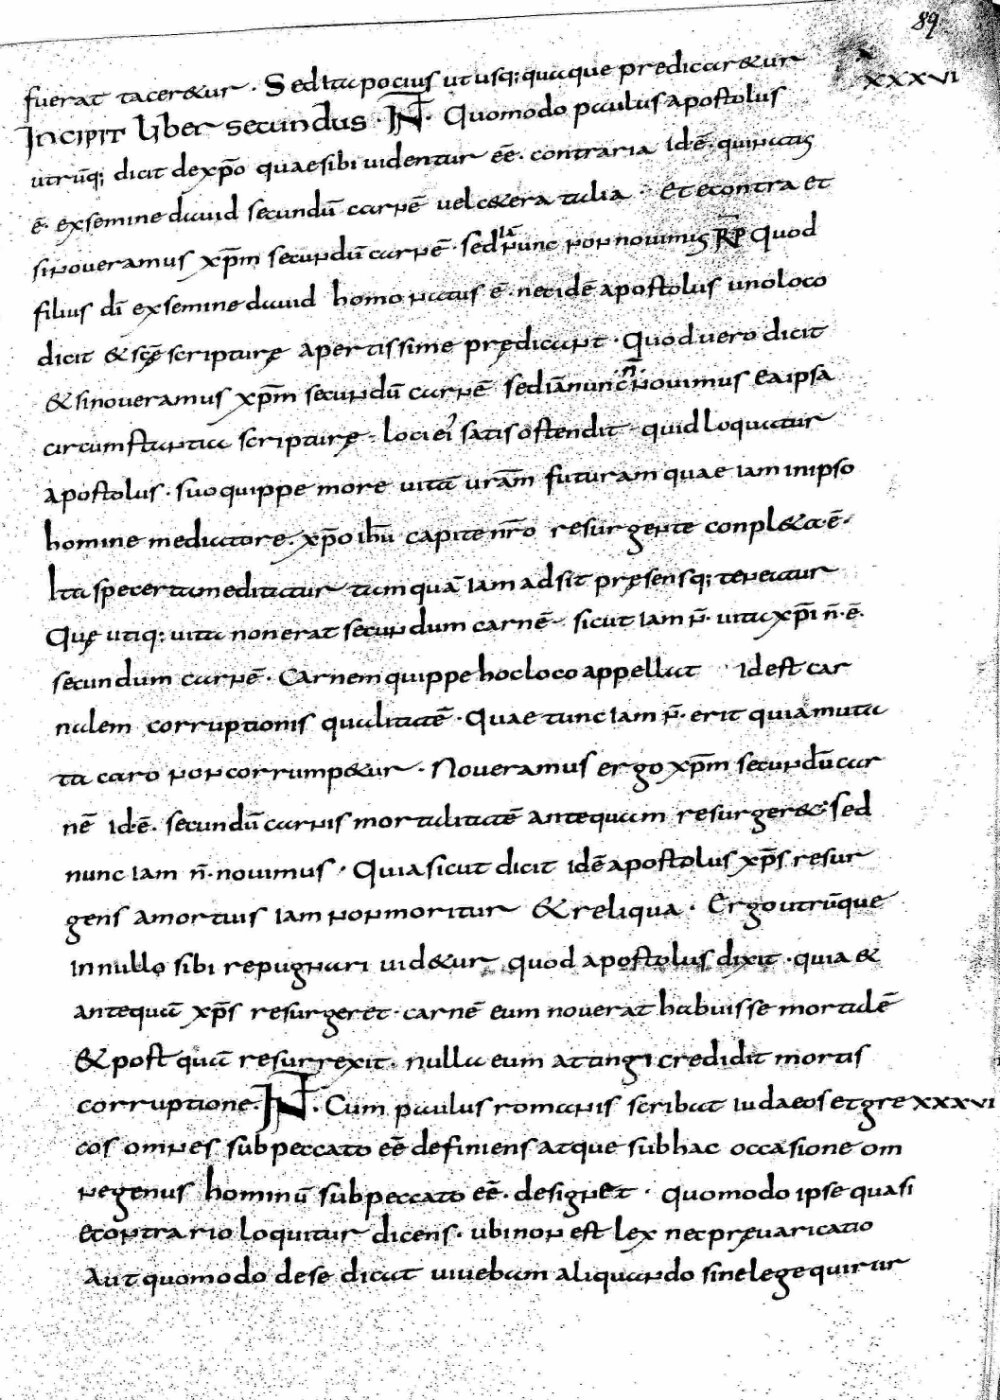 89
fuerat tacer&ur · Sed Ita pocius ut usq; quaque predicar&ur
XXXVI
Incipit Liber secundus · IN̄ · Quomodo paulus apostolus
utrūq; dicit de xp̄o quae sibi uidentur eē · contraria Id·ē· qui natus
ē· ex semine dauid secundū carnē uel c&era talia · Et econtra et
si noueramus xp̄m secundū carnē · sed iā nunc non nouimus R̄P Quod
filius dī ex semine dauid homo natus ē· nec idē apostolus uno loco
dicit & sc̄ę scripturę apertissime prędicant · Quod uero dicit
& si noueramus xp̄m secundū carnē sed iā nunc n̄ nouimus Ea ipsa
circumstantia scripturę · loci eī satis ostendit · quid loquatur
apostolus · suo quippe more uitā ūram futuram quae iam in ipso
homine mediatore · xp̄o ih̄u capite nr̄o resurgente conpl&a·ē·
Ita spe certa meditatur tamquā Iam adsit pręsensq; teneatur
Quę utiq; uita non erat secundum carnē · sicut Iam n̄· uita xp̄i n̄·ē·
secundum carnē · Carnem quippe hoc loco appellat Id est car
nalem corruptionis qualitatē · Quae tunc Iam n̄· erit quia muta
ta caro non corrump&ur · Noueramus ergo xp̄m secundū car
nē Id·ē· secundū carnis mortalitatē antequam resurger& · sed
nunc Iam n̄· nouimus · Quia sicut dicit idē apostolus xp̄s resur
gens a mortuis Iam non moritur & reliqua · Ergo utrūque
In nullo sibi repugnari uid&ur quod apostolus dixit · quia &
antequā xp̄s resurgeret · carnē eum nouerat habuisse mortalē
& post quā resurrexit · nulla eum attingi credidit mortis
corruptione · IN̄ · Cum paulus romanis scribat iudaeos et gre XXXVI
cos omnes sub peccato eē definiens atque sub hac occasione om
ne genus hominū sub peccato eē· designet · Quomodo ipse quasi
econtrario loquitur dicens · ubi non est lex nec pręuaricatio
Aut quomodo de se dicat uiuebam aliquando sine lege quir ur